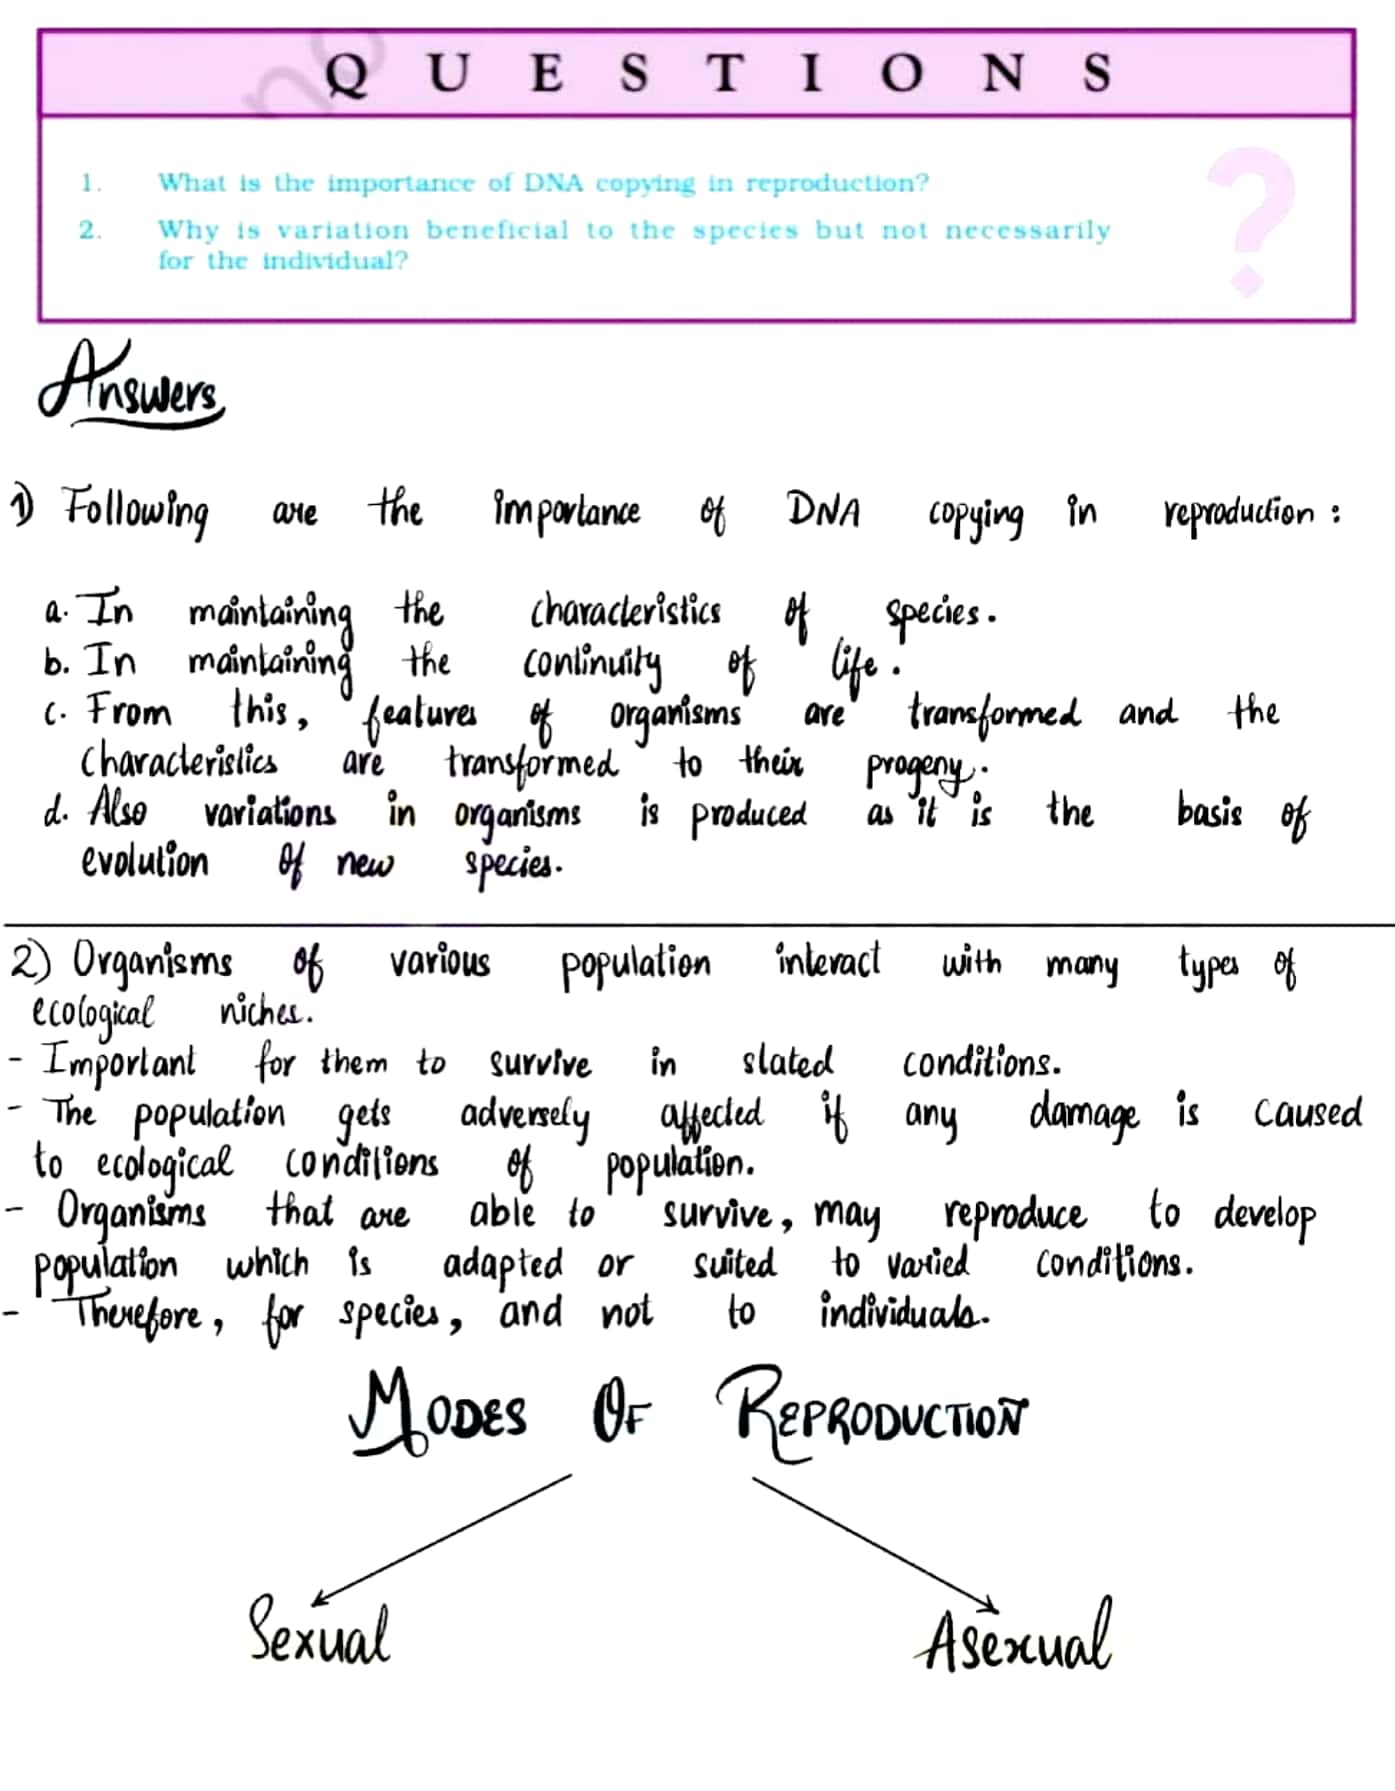 QUESTIONS
1. What is the importance of DNA copying in reproduction?
2. Why is variation beneficial to the species but not necessarily
for the individual?
Answers
1) Following are the importance of DNA copying in reproduction :
a. In maintaining the characteristics of species.
b. In maintaining the continuity of life.
c. From this, features of organisms are transformed and the
characteristics are transformed to their progeny.
d. Also variations in organisms is produced as it is the basis of
evolution of new species.
2) Organisms of various population interact with many types of
ecological niches.
- Important for them to survive in stated conditions.
- The population gets adversely affected if any damage is caused
to ecological conditions of population.
- Organisms that are able to survive, may reproduce to develop
population which is adapted or suited to varied conditions.
- Therefore, for species, and not to individuals.
MODES OF REPRODUCTION
Sexual Asexual